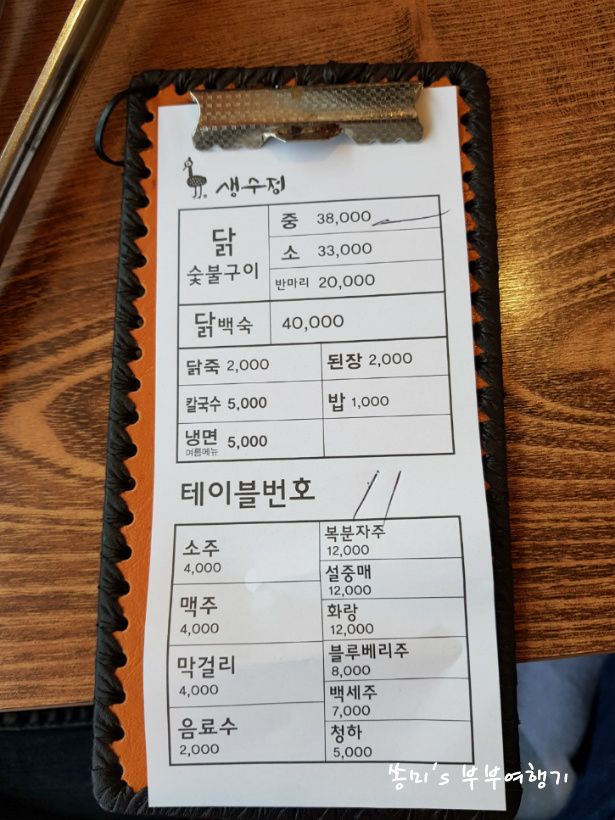 생수정
닭
숯불구이
중 38,000
소 33,000
반마리 20,000
닭백숙 40,000
닭죽 2,000 된장 2,000
칼국수 5,000 밥 1,000
냉면 5,000
여름메뉴
테이블번호 11
소주
4,000
맥주
4,000
막걸리
4,000
음료수
2,000
복분자주
12,000
설중매
12,000
화랑
12,000
블루베리주
8,000
백세주
7,000
청하
5,000
쏭미's 부부여행기